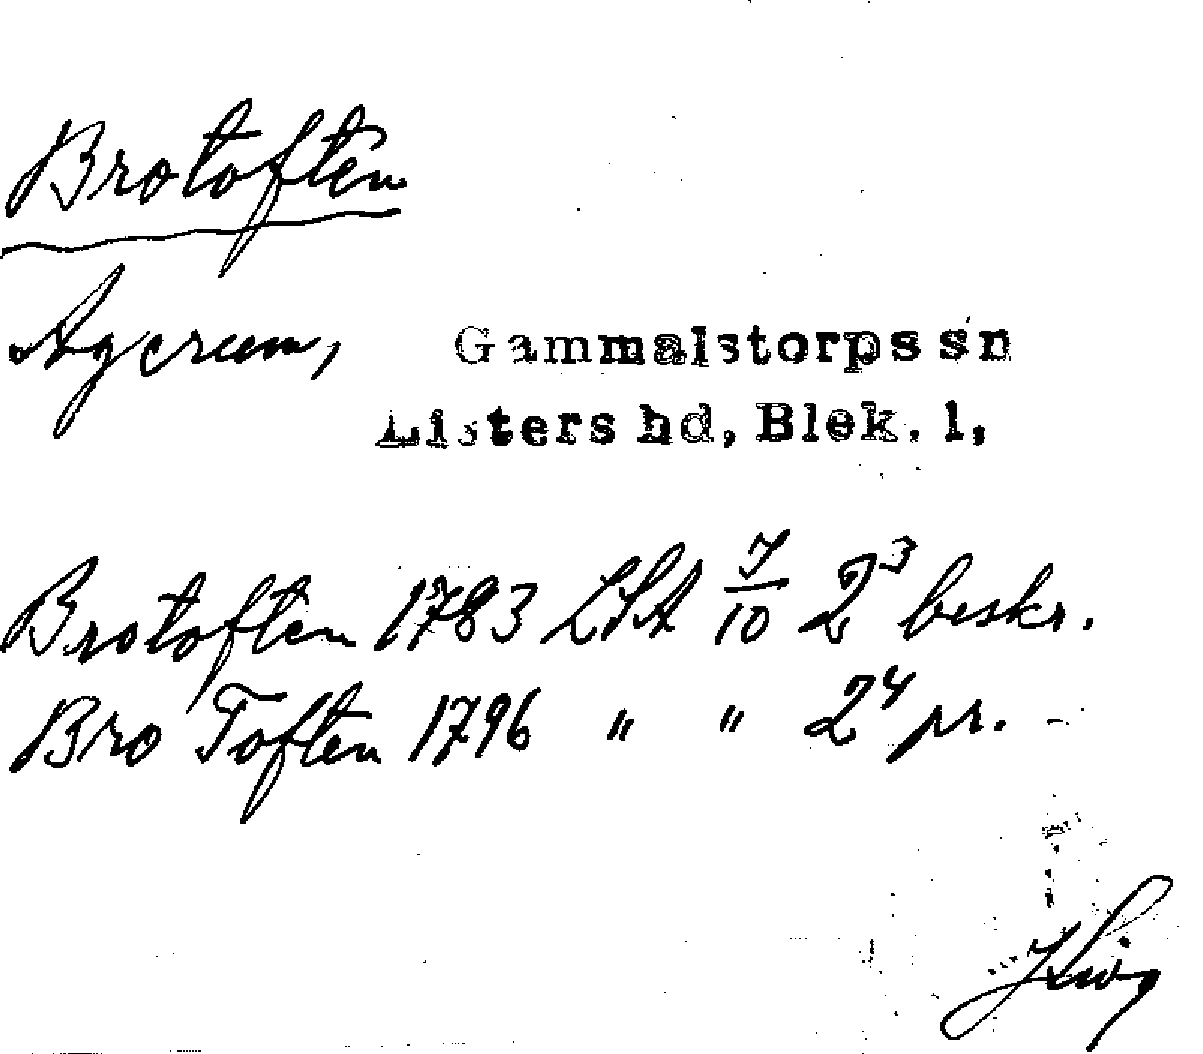 Brotoften
Agerum, Gammalstorps sn
Listers hd, Blek. l,
Brotoften 1783 LSA 7/10 2³ beskr.
Bro Toften 1796 " " 2⁴ pr. -